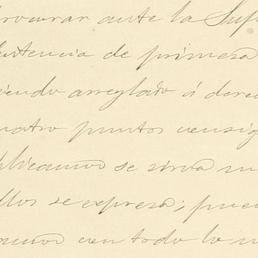 procurar ante la Sup
stencia de primera
iendo arreglado á derec
uatro puntos consig
plicamos se sirva m
llos se expresa; pue
amos en todo lo